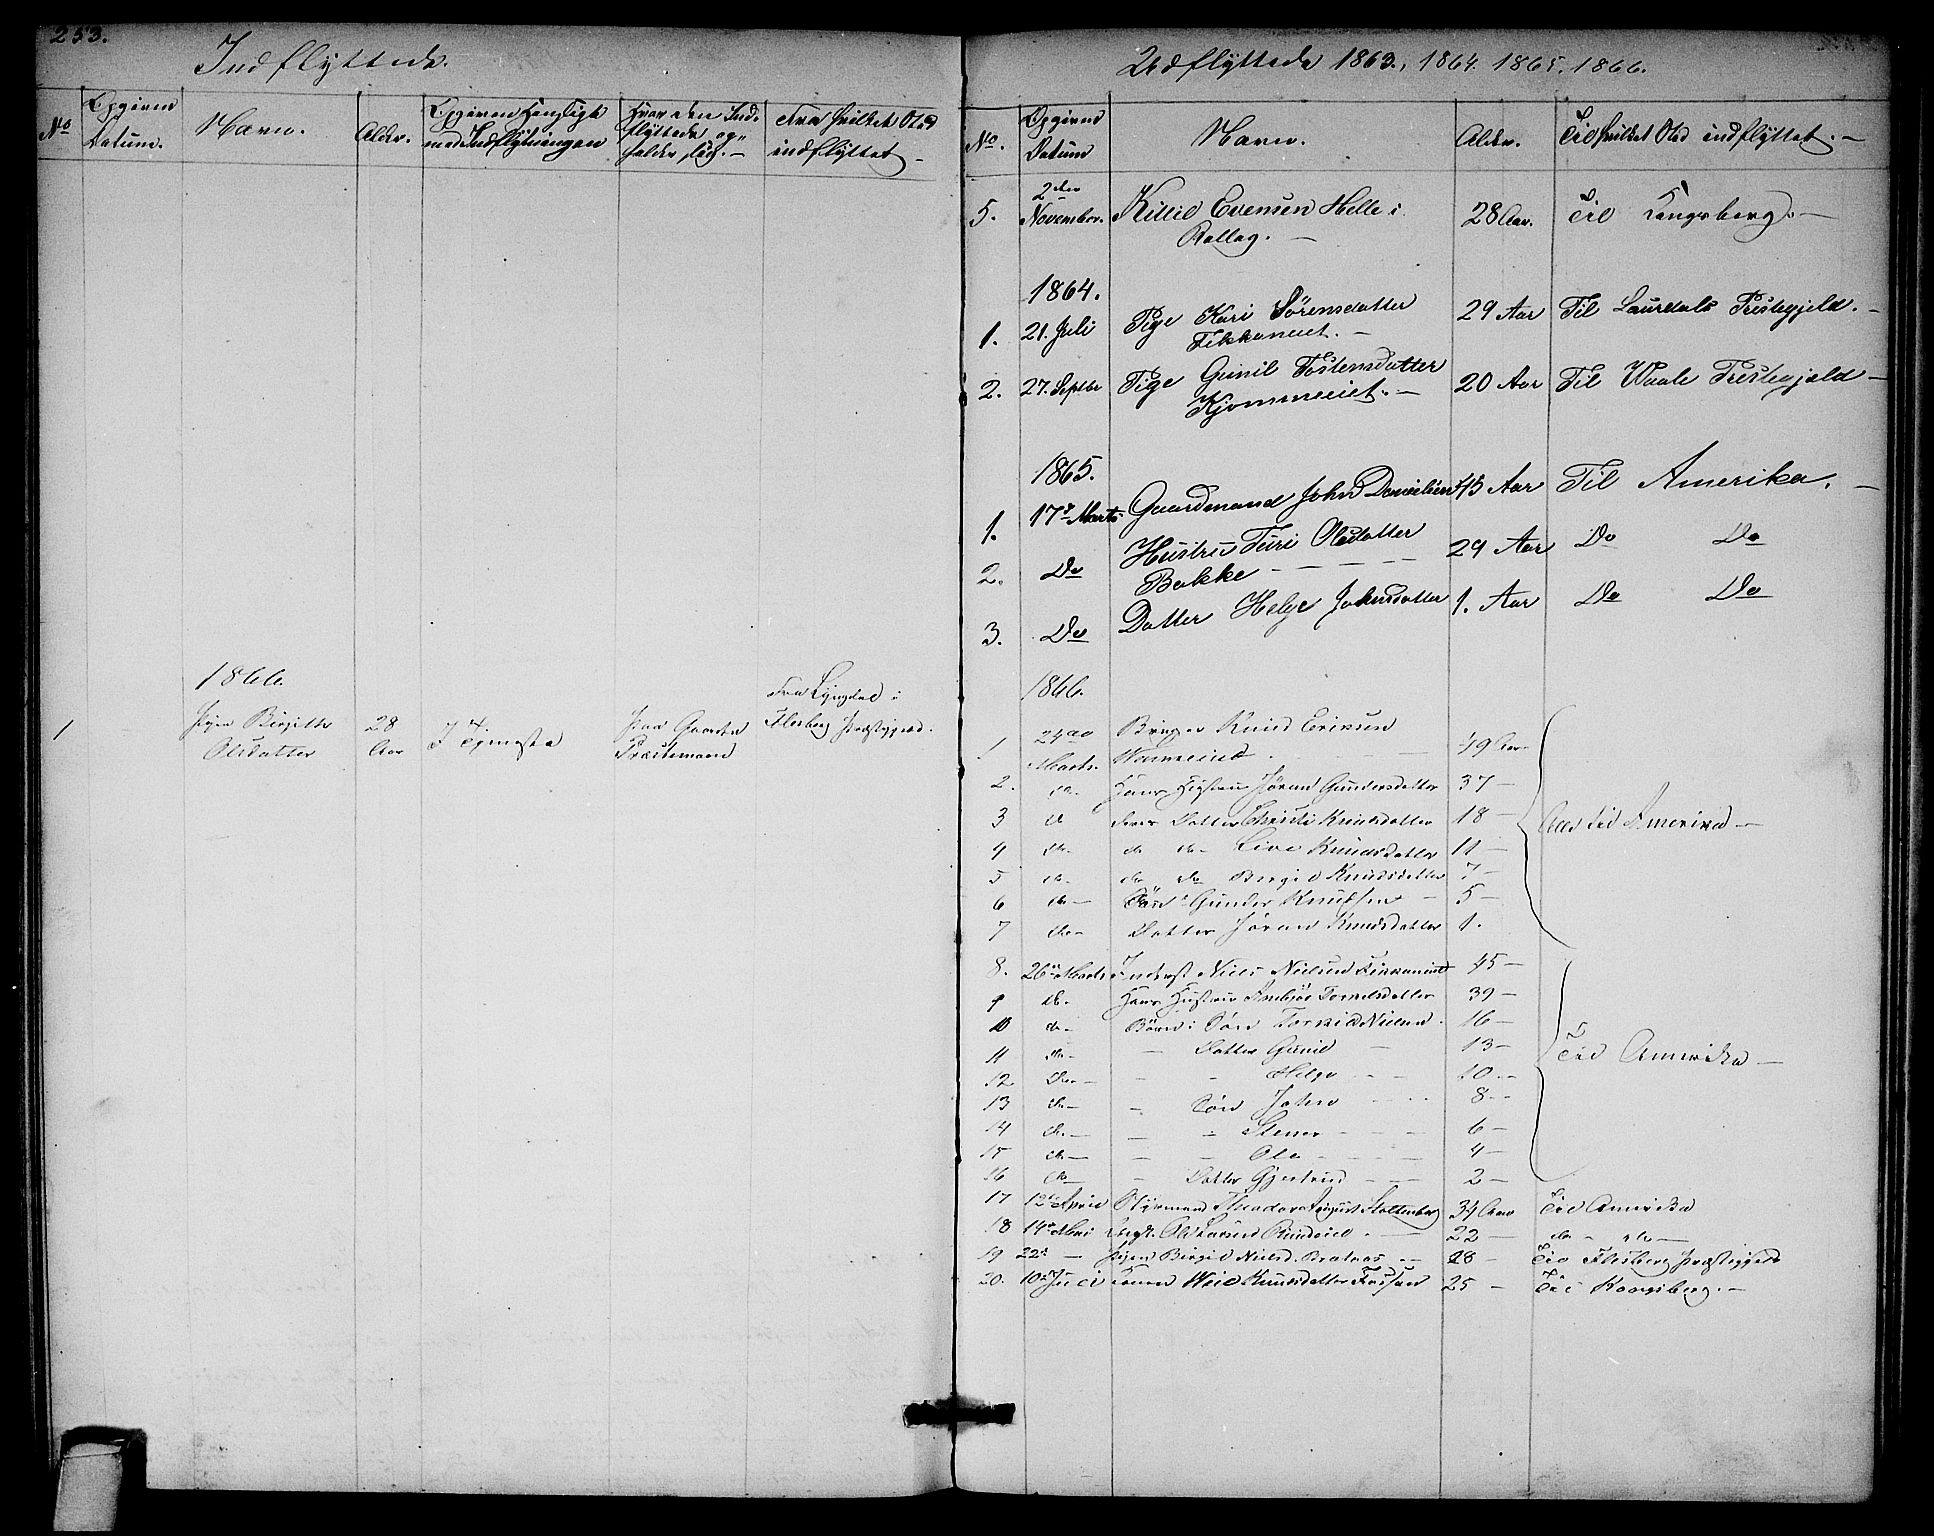 253.
Indflyttede.
No
Opgiven Datum.
Navn.
Alder.
Opgiven Hensigt med Indflytningen
Hvor den Ind-
flyttede op-
holder sig. —
Fra hvilket Sted
indflyttet —
1866.
1
Pigen Birgitte
Olsdatter
28
Aar
I Tjeneste
paa Gaarden
Fra Lyngdal i
Flesberg Præstegjeld.
Udflyttede 1863, 1864. 1865. 1866.
No.
Opgivne Datum
Navn.
Alder.
Til hvilket Sted indflyttet. —
5. 2den November. Killil Evensen Helle i 28 Aar. Til Kongsberg. —
Rollag. —
1864.
1. 21. Juli Pige Kari Sörensdatter 29 Aar Til Laurdals Prestegjeld. —
2. 27. Septbr Pige Gunil Tostensdatter 20 Aar Til Waale Prestegjeld —
1865.
1. 17de Marts Gaardmand John Danielsen 45 Aar Til Amerika. —
2. Do Hustru Turi Olsdatter 29 Aar Do Do
Bakke
3. Do Datter Helge Johnsdatter 1. Aar Do Do
1866.
1 24de Marts. Knud Eriksen 49 Aar
2. do. Hans Hustru Jøran Gundersdatter 37 —
3 do deres Datter Christi Knudsdatter 18 — Alle til Amerika —
4 do. do do — Live Knudsdatter 11 —
5 do. do do Birgit Knudsdatter 7 —
6 do — Søn Gunder Knudsen — 5 —
7 do — Datter Jøran Knudsdatter 1.
8. 26de Marts Inderst Niels Nielsen 45 —
9 do. Hans Hustru 39 —
10 do — Börn: Søn Nielsen. 16 —
11 do — — Datter Gunil — 13 — Til Amerika —
12 do — - - Helge - - - 10 —
13 do — — Søn John - - - 8 —
14 do. — — - Stener - - - 6 —
15 do — — - Ole - - - 4 —
16 do — Datter Gjertrud — 2 —
17 12te April Styrmand Theodor August Stoltenberg 34 Aar Til Amerika
18 14de Mai Ole Larsen — 22 — do - do —
19 22de — Pigen Birgit Nielsd. — 28 — Til Flesberg Præstegjeld
20. 10de Juli Konen Knudsdatter 25 — Til Kongsberg. —